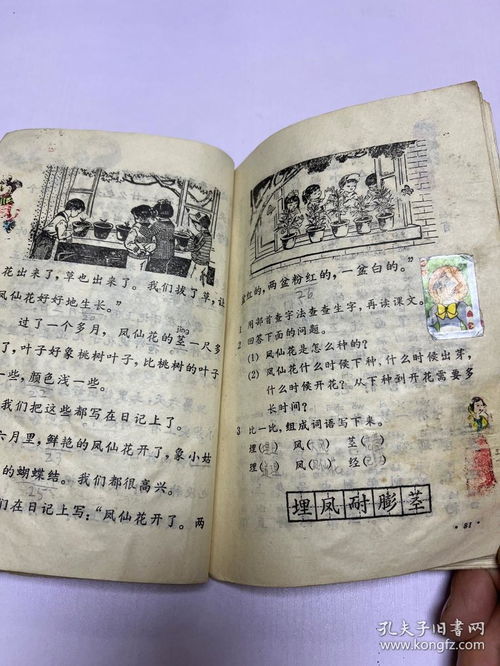 花出来了，草也出来了。我们拔了草，让
凤仙花好好地生长。”
jīng
过了一个多月，凤仙花的茎一尺多
了，叶子好象桃树叶子，比桃树的叶子
一些，颜色浅一些。
我们把这些都写在日记上了。
六月里，鲜艳的凤仙花开了，象小姑
的蝴蝶结。我们都很高兴。
们在日记上写：“凤仙花开了。两
25
红的，两盆粉红的，一盆白的。”
26
1 用部首查字法查查生字，再读课文。
2 回答下面的问题。
(1) 凤仙花是怎么种的？
(2) 凤仙花什么时候下种，什么时候出芽，
什么时候开花？从下种到开花需要多
长时间？
3 比一比，组成词语写下来。
埋( 凤( 茎(
理( 风( 经(
埋凤耐膨茎
·81·
孔夫子旧书网
www.kongfz.com